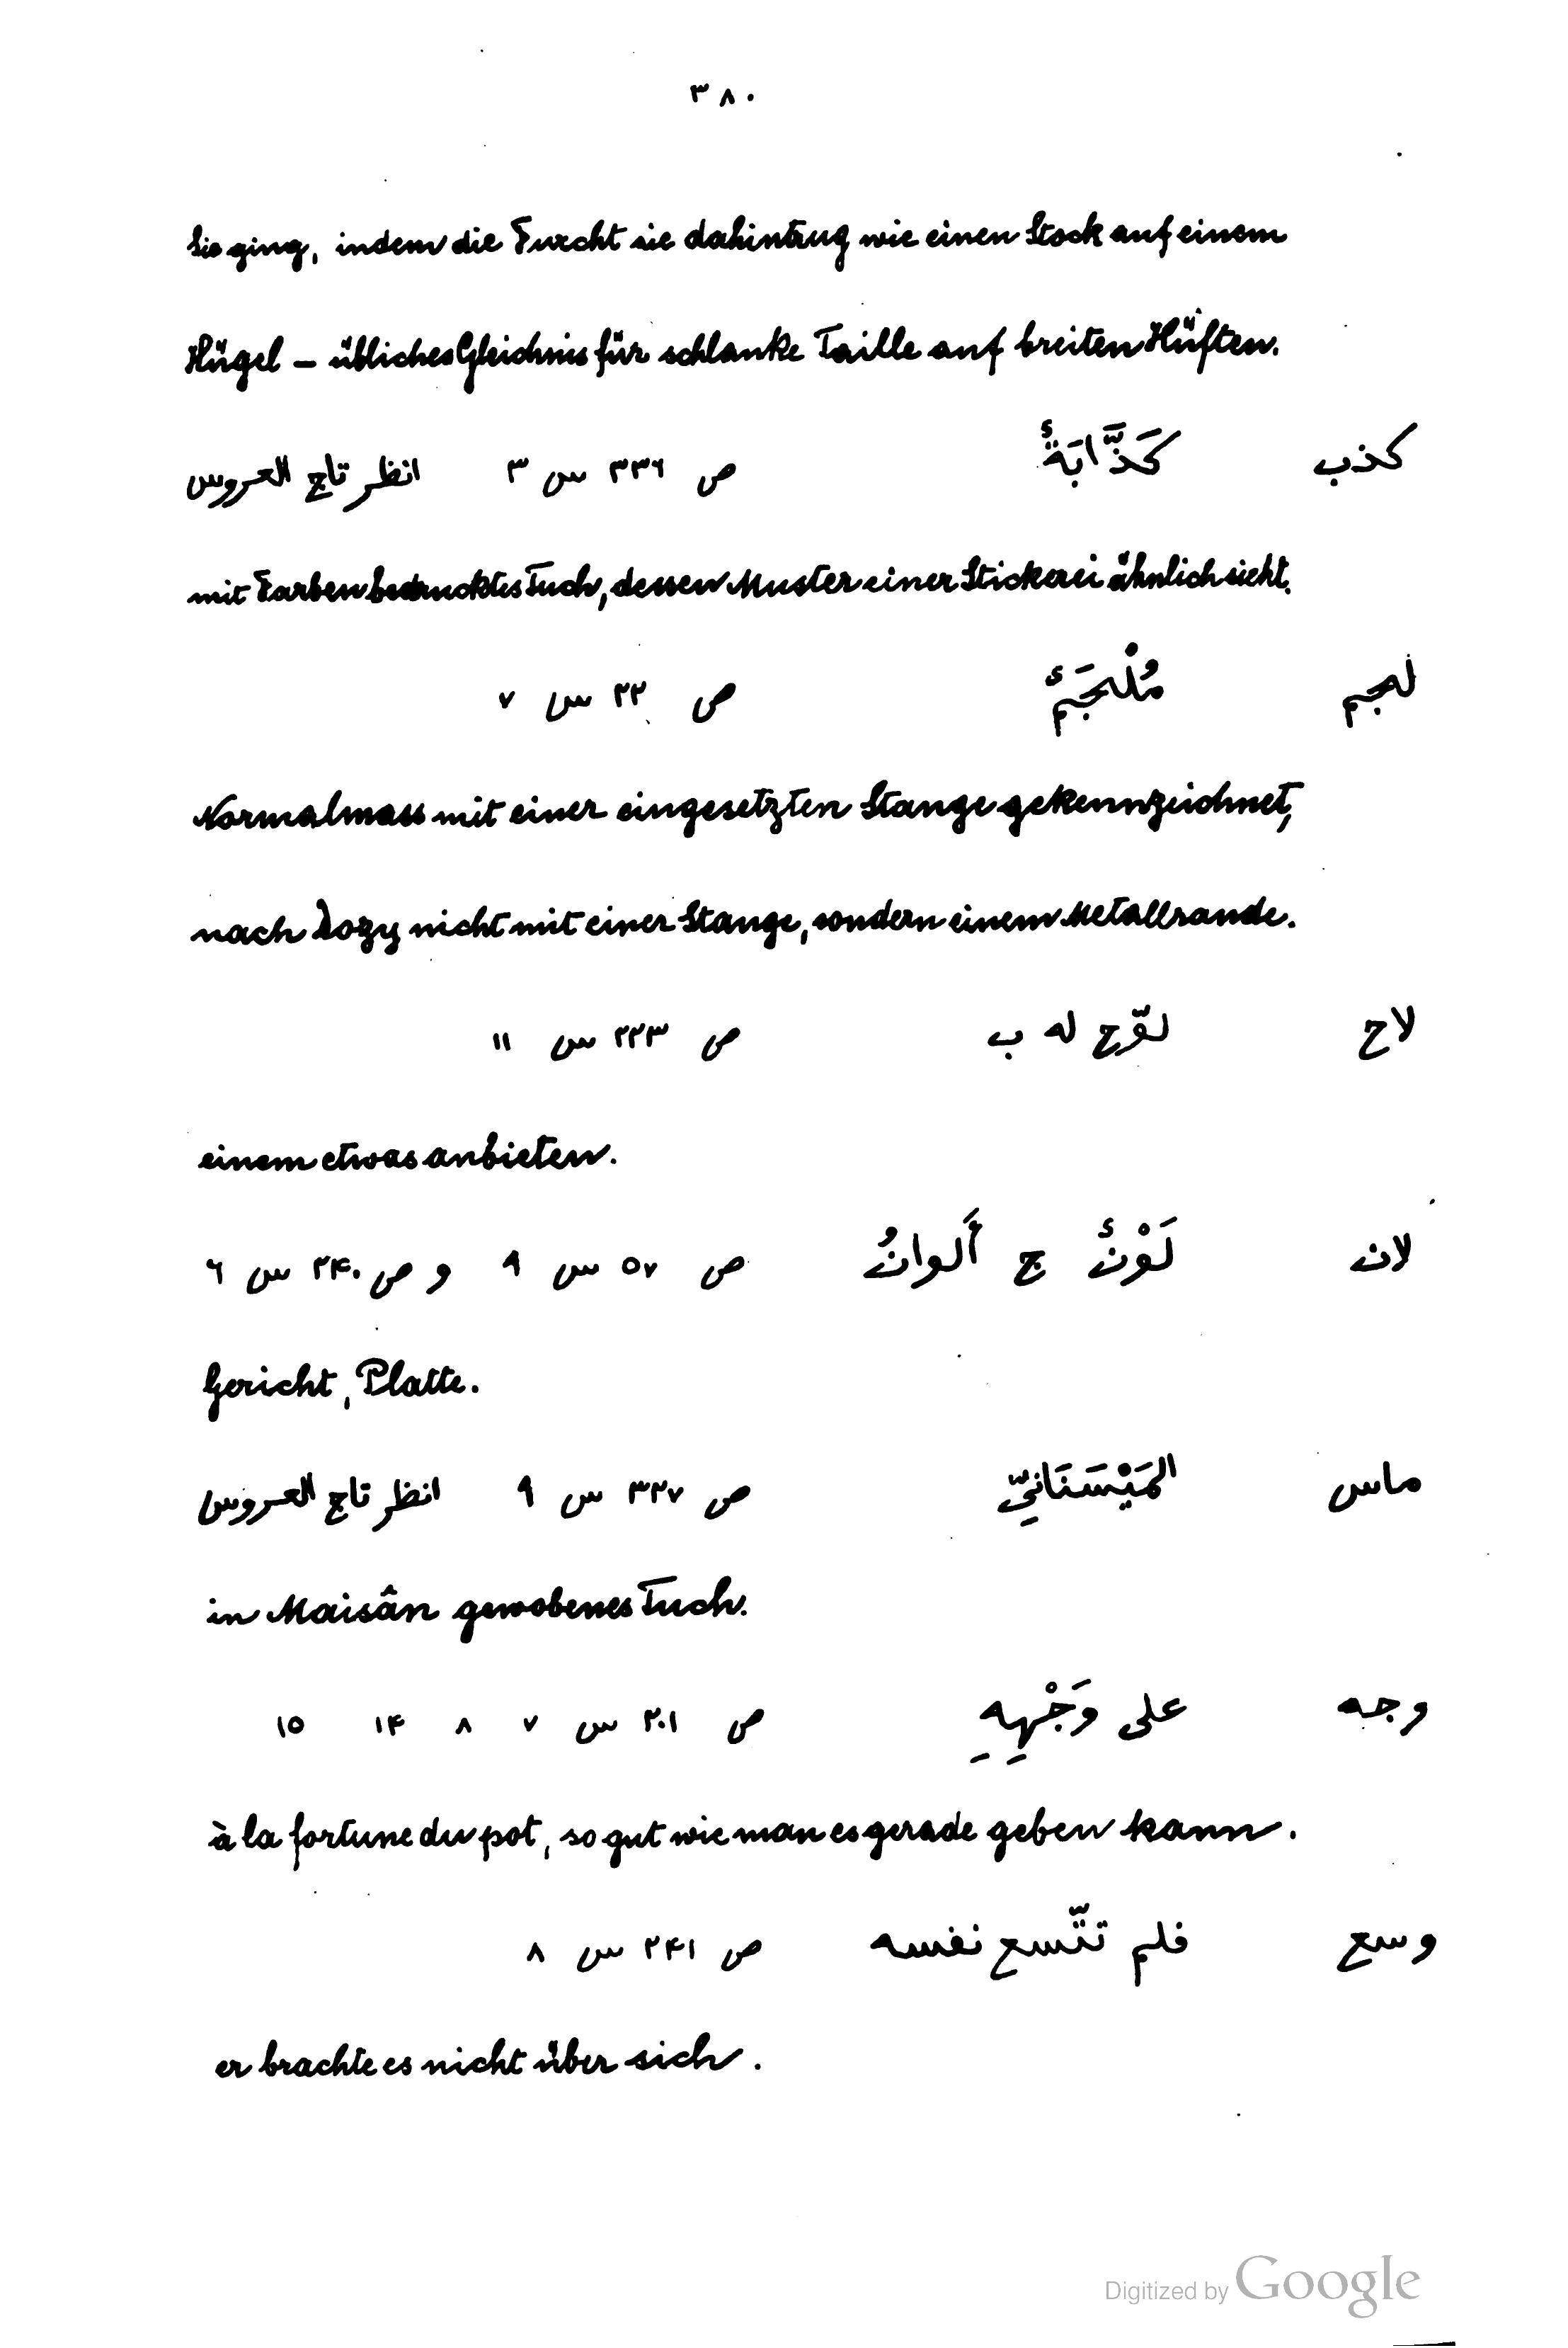 ٣٨٠
Sie ging, indem die Furcht sie dahintrug wie einen Stock auf einem
Hügel – übliches Gleichnis für schlanke Taille auf breiten Hüften.
كذب كَذَّابَةٌ ص ٣٣٦ س ٣ انظر تاج العروس
mit Farben bedrucktes Tuch, dessen Muster einer Stickerei ähnlich sieht.
لجم مُلْجَمٌ ص ٢٢ س ٧
Normalmass mit einer eingesetzten Stange gekennzeichnet,
nach Dozy nicht mit einer Stange, sondern einem Metallrande.
لاح لوّح له ب ص ٢٢٣ س ١١
einem etwas anbieten.
لان لَوْنٌ ج أَلوانُ ص ٥٧ س ٩ و ص ٢٤٠ س ٦
Gericht, Platte.
ماس المَيْسَنَانيّ ص ٣٢٧ س ٩ انظر تاج العروس
in Maisân gewobenes Tuch.
وجه على وَجْهِهِ ص ٢٠١ س ٧ ٨ ١٤ ١٥
à la fortune du pot, so gut wie man es gerade geben kann.
وسع فلم تتّسع نفسه ص ٢٤١ س ٨
er brachte es nicht über sich.
Digitized by Google